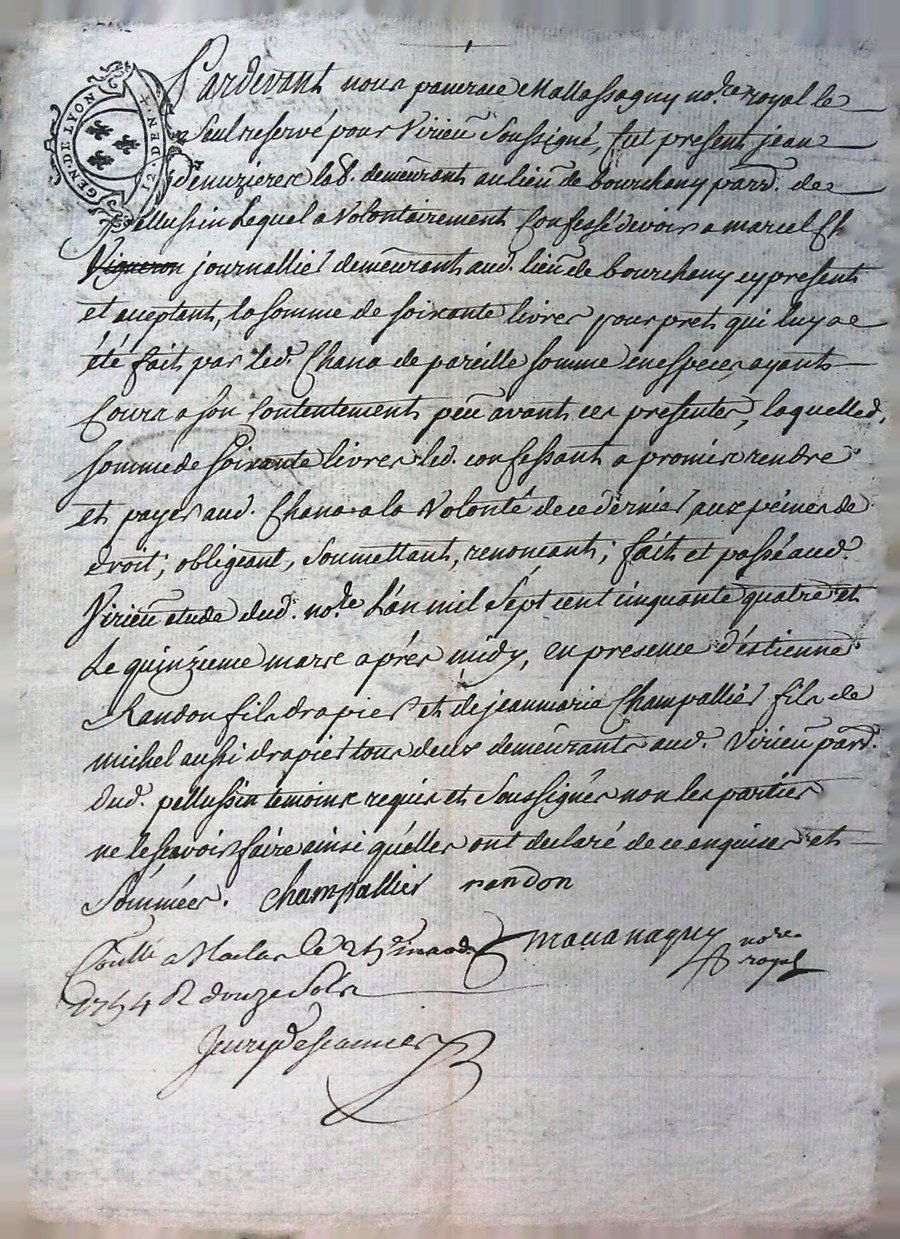 GEN. DE LYON
12. DEN. IER
Pardevant nous pancrace Mallassagny no.re royal le
Seul reservé pour Virieu Soussigné, fut present jean
demeurant au lieu de bourchany parr. de
pellussin Lequel a Volontairement Confessé devoir a marcel Ch
Vigneron journallier demeurant aud. lieu de bourchany cy present
et aceptant, la somme de soixante livres pour prets qui luy a
été fait par led. Chana de pareille somme en especes ayants
Cours a son Contentement peu avant ces presentes, laquelle d.
somme de soixante livres led. confessant a promis rendre
et payer aud. Chana a la Volonté de ce dernier aux peines de
droit; obligeant, soumettant, renoncant; fait et passé aud.
Virieu etude dud. no.re L'an mil Sept cent cinquante quatre et
Le quinzieme mars après midy, en presence d'estienne
Randon fils drapier et de jeanmarie Champallier fils de
michel aussi drapier tous deux demeurants aud. Virieu parr.
dud. pellussin temoins requis et Soussignés non les parties
ne le scavoir faire ainsi qu'elles ont declaré de ce enquises et
Sommées. Champallier randon
Conllé a Maclas le 25
no.re
royal
1754 R douze Sols